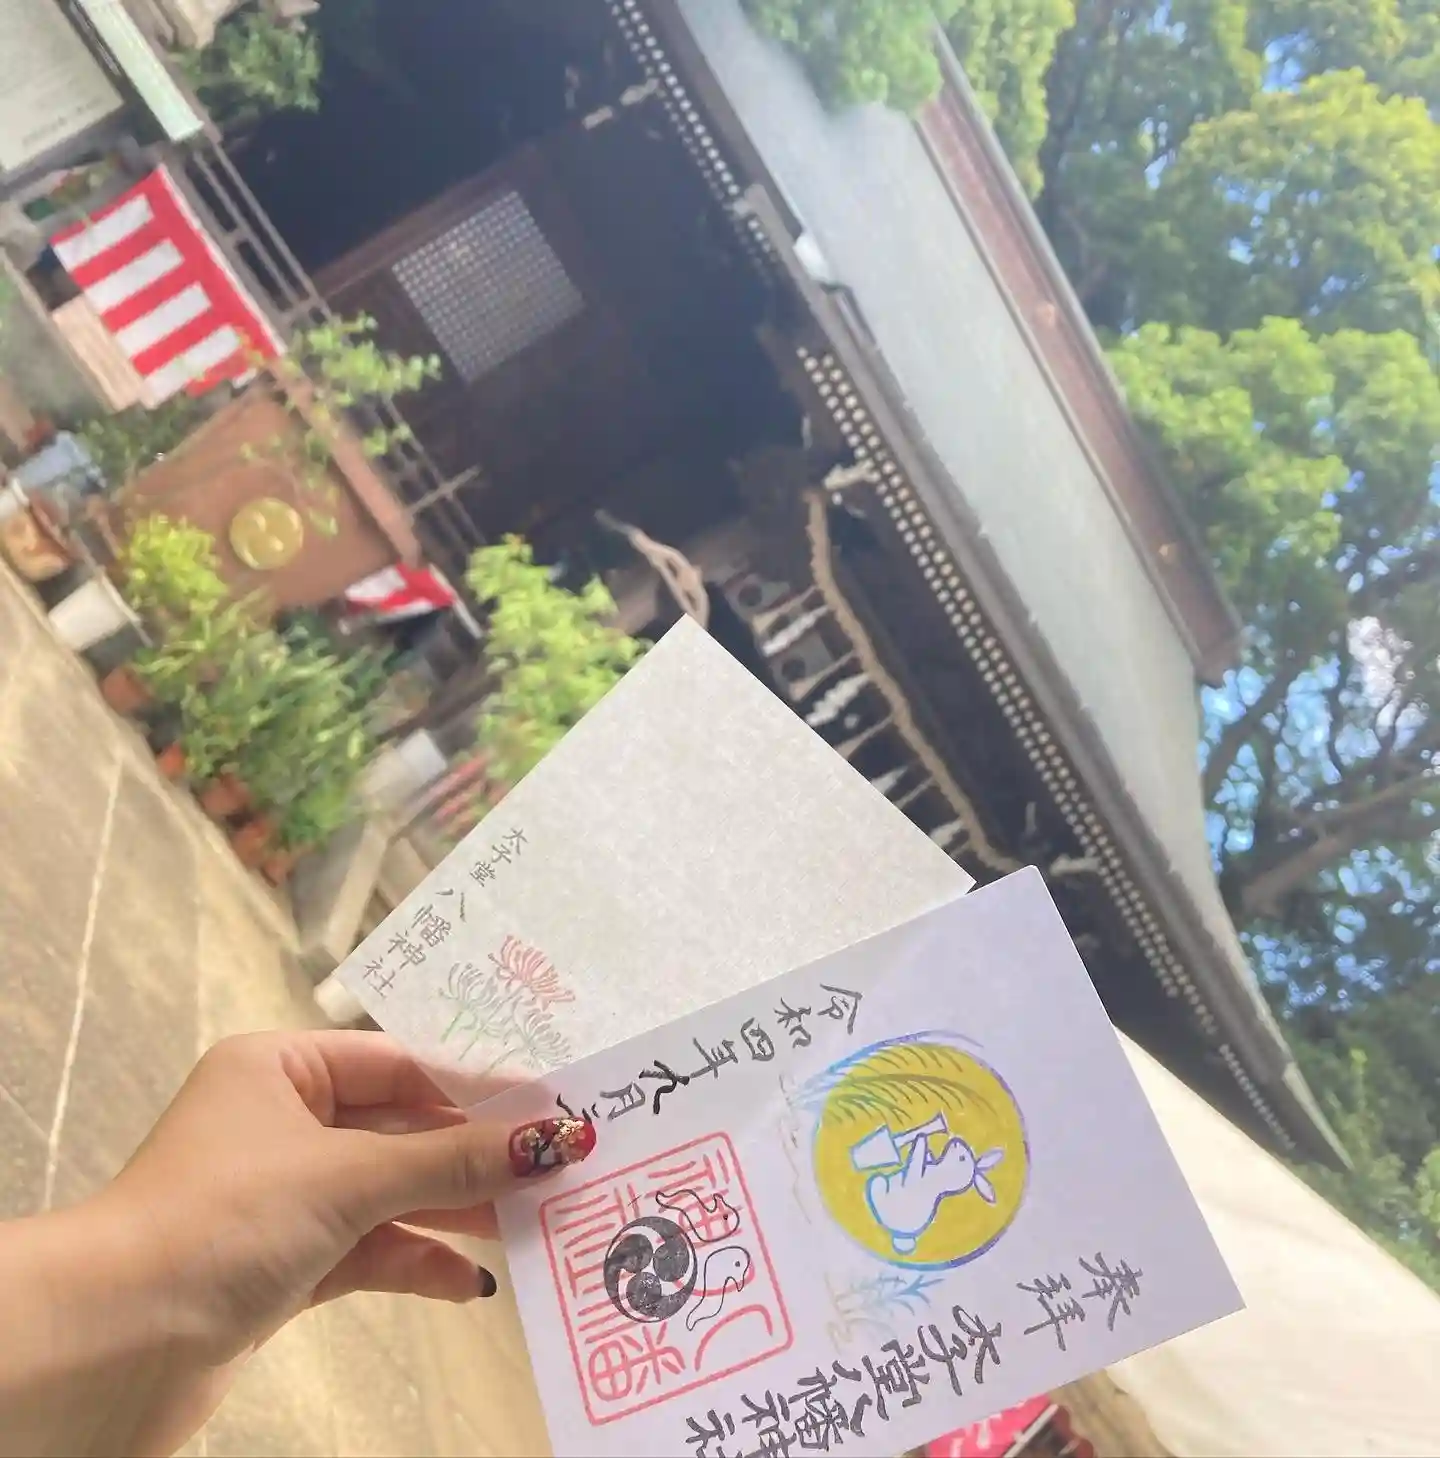 太子堂
八幡神社
奉拝
太子堂八幡神社
令和四年九月
八幡神社